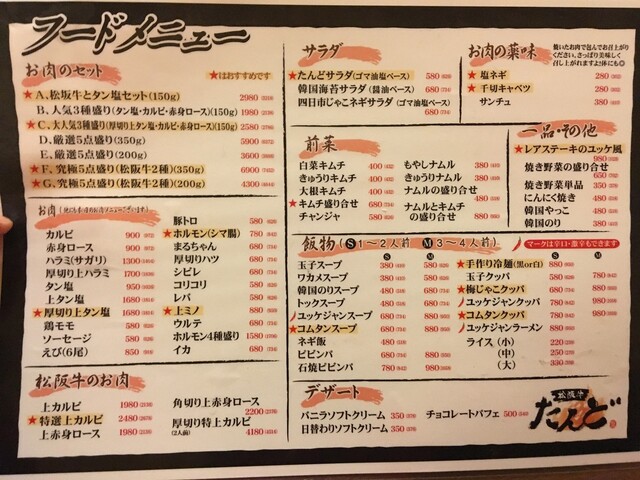 フードメニュー
お肉のセット ★はおすすめです
★A、松坂牛とタン塩セット(150g) 2980
B、人気3種盛り(タン塩・カルビ・赤身ロース)(150g) 1980
★C、大人気3種盛り(厚切り上タン塩・カルビ・赤身ロース)(150g) 2580
D、厳選5点盛り(350g) 5900
E、厳選5点盛り(200g) 3600
★F、究極5点盛り(松阪牛2種)(350g) 6900
★G、究極5点盛り(松阪牛2種)(200g) 4300
お肉
カルビ 900
赤身ロース 900
ハラミ(サガリ) 1300
厚切り上ハラミ 1700
タン塩 950
上タン塩 1680
★厚切り上タン塩 1980
鶏モモ 580
ソーセージ 580
えび(6尾) 850
豚トロ 580
★ホルモン(シマ腸) 780
まるちゃん 680
厚切りハツ 680
シビレ 680
コリコリ 580
レバ 580
★上ミノ 880
ウルテ 680
ホルモン4種盛り 1580
イカ 680
松阪牛のお肉
上カルビ 1980
★特選上カルビ 2480
上赤身ロース 1980
角切り上赤身ロース
2200
厚切り特上カルビ
(2人前) 4180
サラダ
★たんどサラダ(ゴマ油塩ベース) 580
韓国海苔サラダ(醤油ベース) 680
四日市じゃこネギサラダ(ゴマ油塩ベース)
680
お肉の薬味
焼いたお肉で包んでお召上がり
ください。さっぱり美味しく
召し上がれますよ!体にも◎
★塩ネギ 280
★千切キャベツ 280
サンチュ 380
前菜
白菜キムチ 400
きゅうりキムチ 400
大根キムチ 400
★キムチ盛合せ 680
チャンジャ 580
もやしナムル 380
きゅうりナムル 380
ナムルの盛り合せ
680
ナムルとキムチ
の盛り合せ 880
一品・その他
★レアステーキのユッケ風
980
焼き野菜の盛り合せ
650
焼き野菜単品 350
にんにく焼き 480
韓国やっこ 480
韓国のり 380
飯物 (Ⓢ1～2人前 Ⓜ3～4人前) マークは辛口・激辛もできます
Ⓢ Ⓜ
玉子スープ 380 580
ワカメスープ 380 580
韓国のりスープ 380 580
トックスープ 480 680
ユッケジャンスープ 680 880
★コムタンスープ 680 880
ネギ飯 480
ビビンバ 680 880
石焼ビビンバ 780 980
Ⓢ Ⓜ
★手作り冷麺(黒or白) 880
玉子クッパ 580 780
★梅じゃこクッパ 680 880
ユッケジャンクッパ 780 980
★コムタンクッパ 780 980
ユッケジャンラーメン 880
ライス(小) 220
(中) 250
(大) 330
デザート
バニラソフトクリーム 350
日替わりソフトクリーム 350
チョコレートパフェ 500
松阪牛
たんど